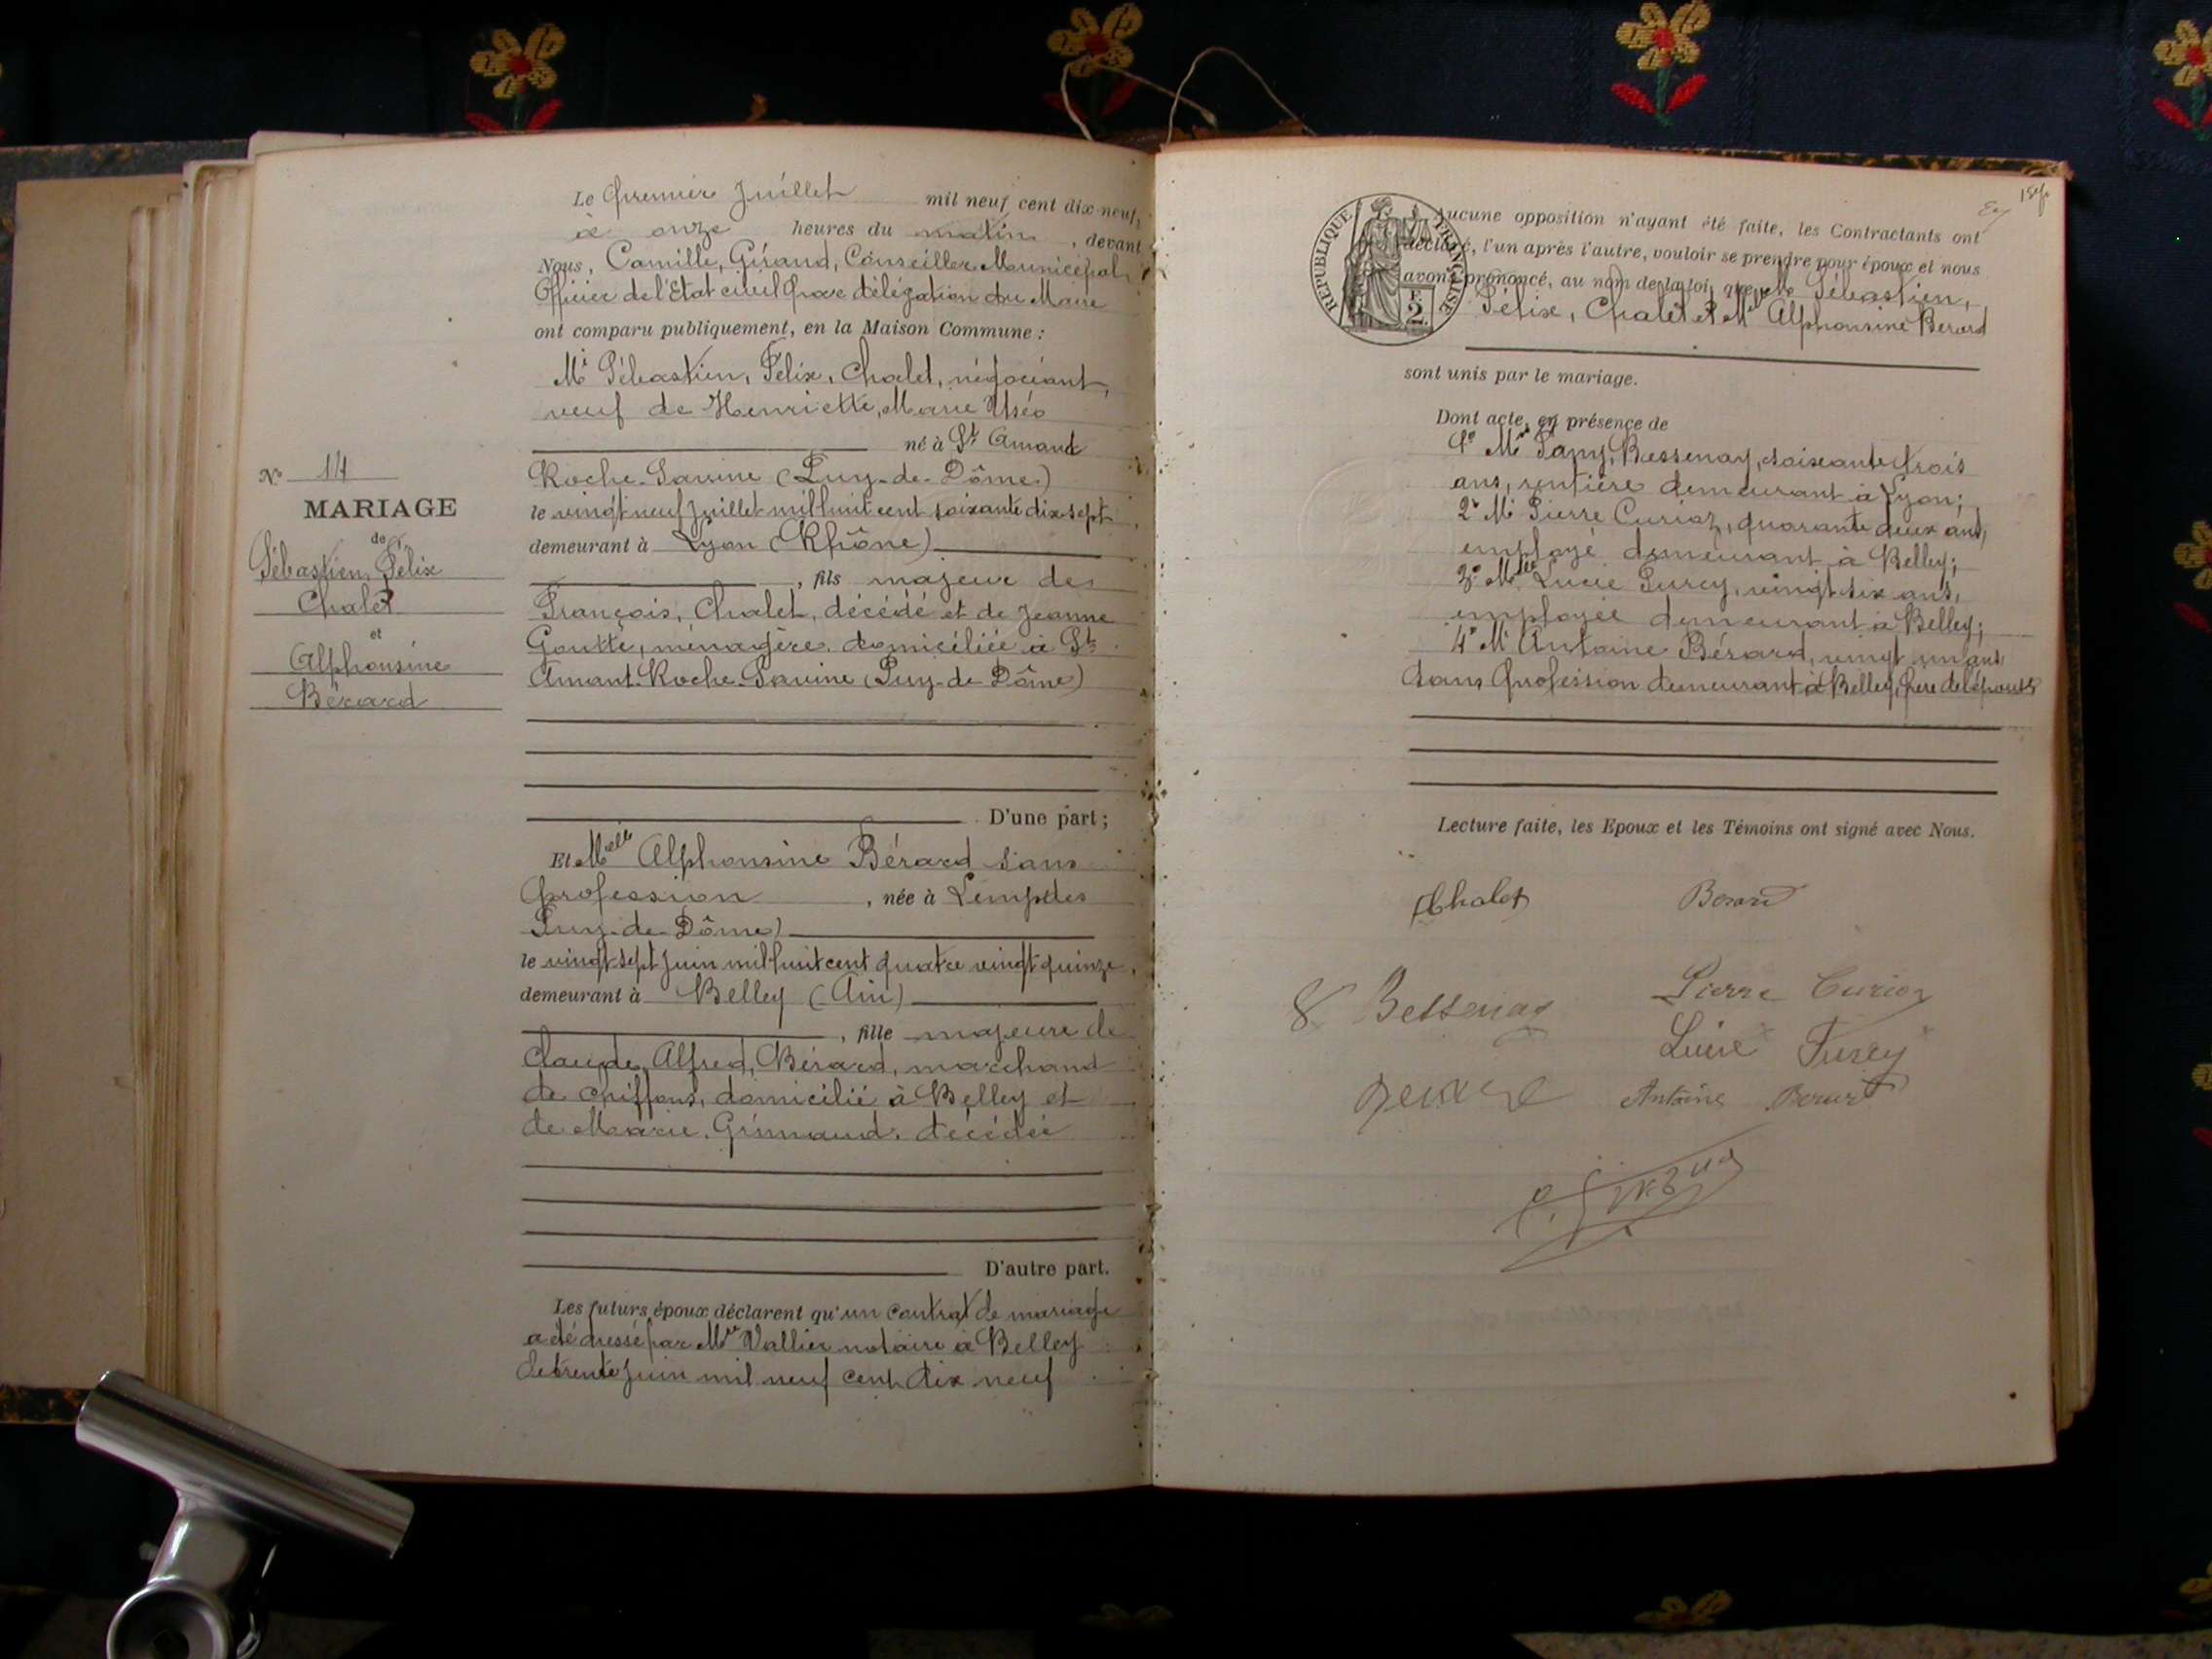 Le premier Juillet mil neuf cent dix-neuf,
à onze heures du matin, devant
Nous, Camille, Giraud, Conseiller Municipal,
Officier de l'Etat civil par délégation du Maire
ont comparu publiquement, en la Maison Commune :
Mr Sébastien, Félix, Chalet, négociant,
veuf de Henriette, Marie
né à St Amand
Roche-Savine (Puy-de-Dôme)
le vingt neuf Juillet mil huit cent soixante dix sept
demeurant à Lyon (Rhône)
, fils majeur de
François, Chalet, décédé et de Jeanne
Goutte, ménagère domiciliée à St
Amant-Roche-Savine (Puy-de-Dôme)
D'une part ;
Et Melle Alphonsine Bérard sans
profession, née à Lempdes
Puy-de-Dôme)
le vingt sept Juin mil huit cent quatre vingt quinze,
demeurant à Belley (Ain)
, fille majeure de
Claude, Alfred, Bérard, marchand
de chiffons, domicilié à Belley et
de Marie, Grimaud, décédée
D'autre part.
Les futurs époux déclarent qu'un contrat de mariage
a été dressé par Me Vallier notaire à Belley
le trente Juin mil neuf cent dix neuf
No 14
MARIAGE
de
Sébastien, Félix
Chalet
et
Alphonsine
Bérard
Aucune opposition n'ayant été faite, les Contractants ont
déclaré, l'un après l'autre, vouloir se prendre pour époux et nous
avons prononcé, au nom de la loi, que Mr Sébastien,
Félix, Chalet et Melle Alphonsine Berard
sont unis par le mariage.
Dont acte, en présence de
1º Me Bessenay, soixante trois
ans, rentière demeurant à Lyon ;
2º Mr Pierre Curioz, quarante deux ans,
employé demeurant à Belley ;
3º Melle Lucie Furey, vingt six ans,
employée demeurant à Belley ;
4º Mr Antoine Bérard, vingt un ans
sans profession demeurant à Belley, frère de l'épouse
Lecture faite, les Epoux et les Témoins ont signé avec Nous.
Chalet Berard
Bessenay Pierre Curioz
Lucie Furey
Antoine Berard
RÉPUBLIQUE FRANÇAISE
F.
2